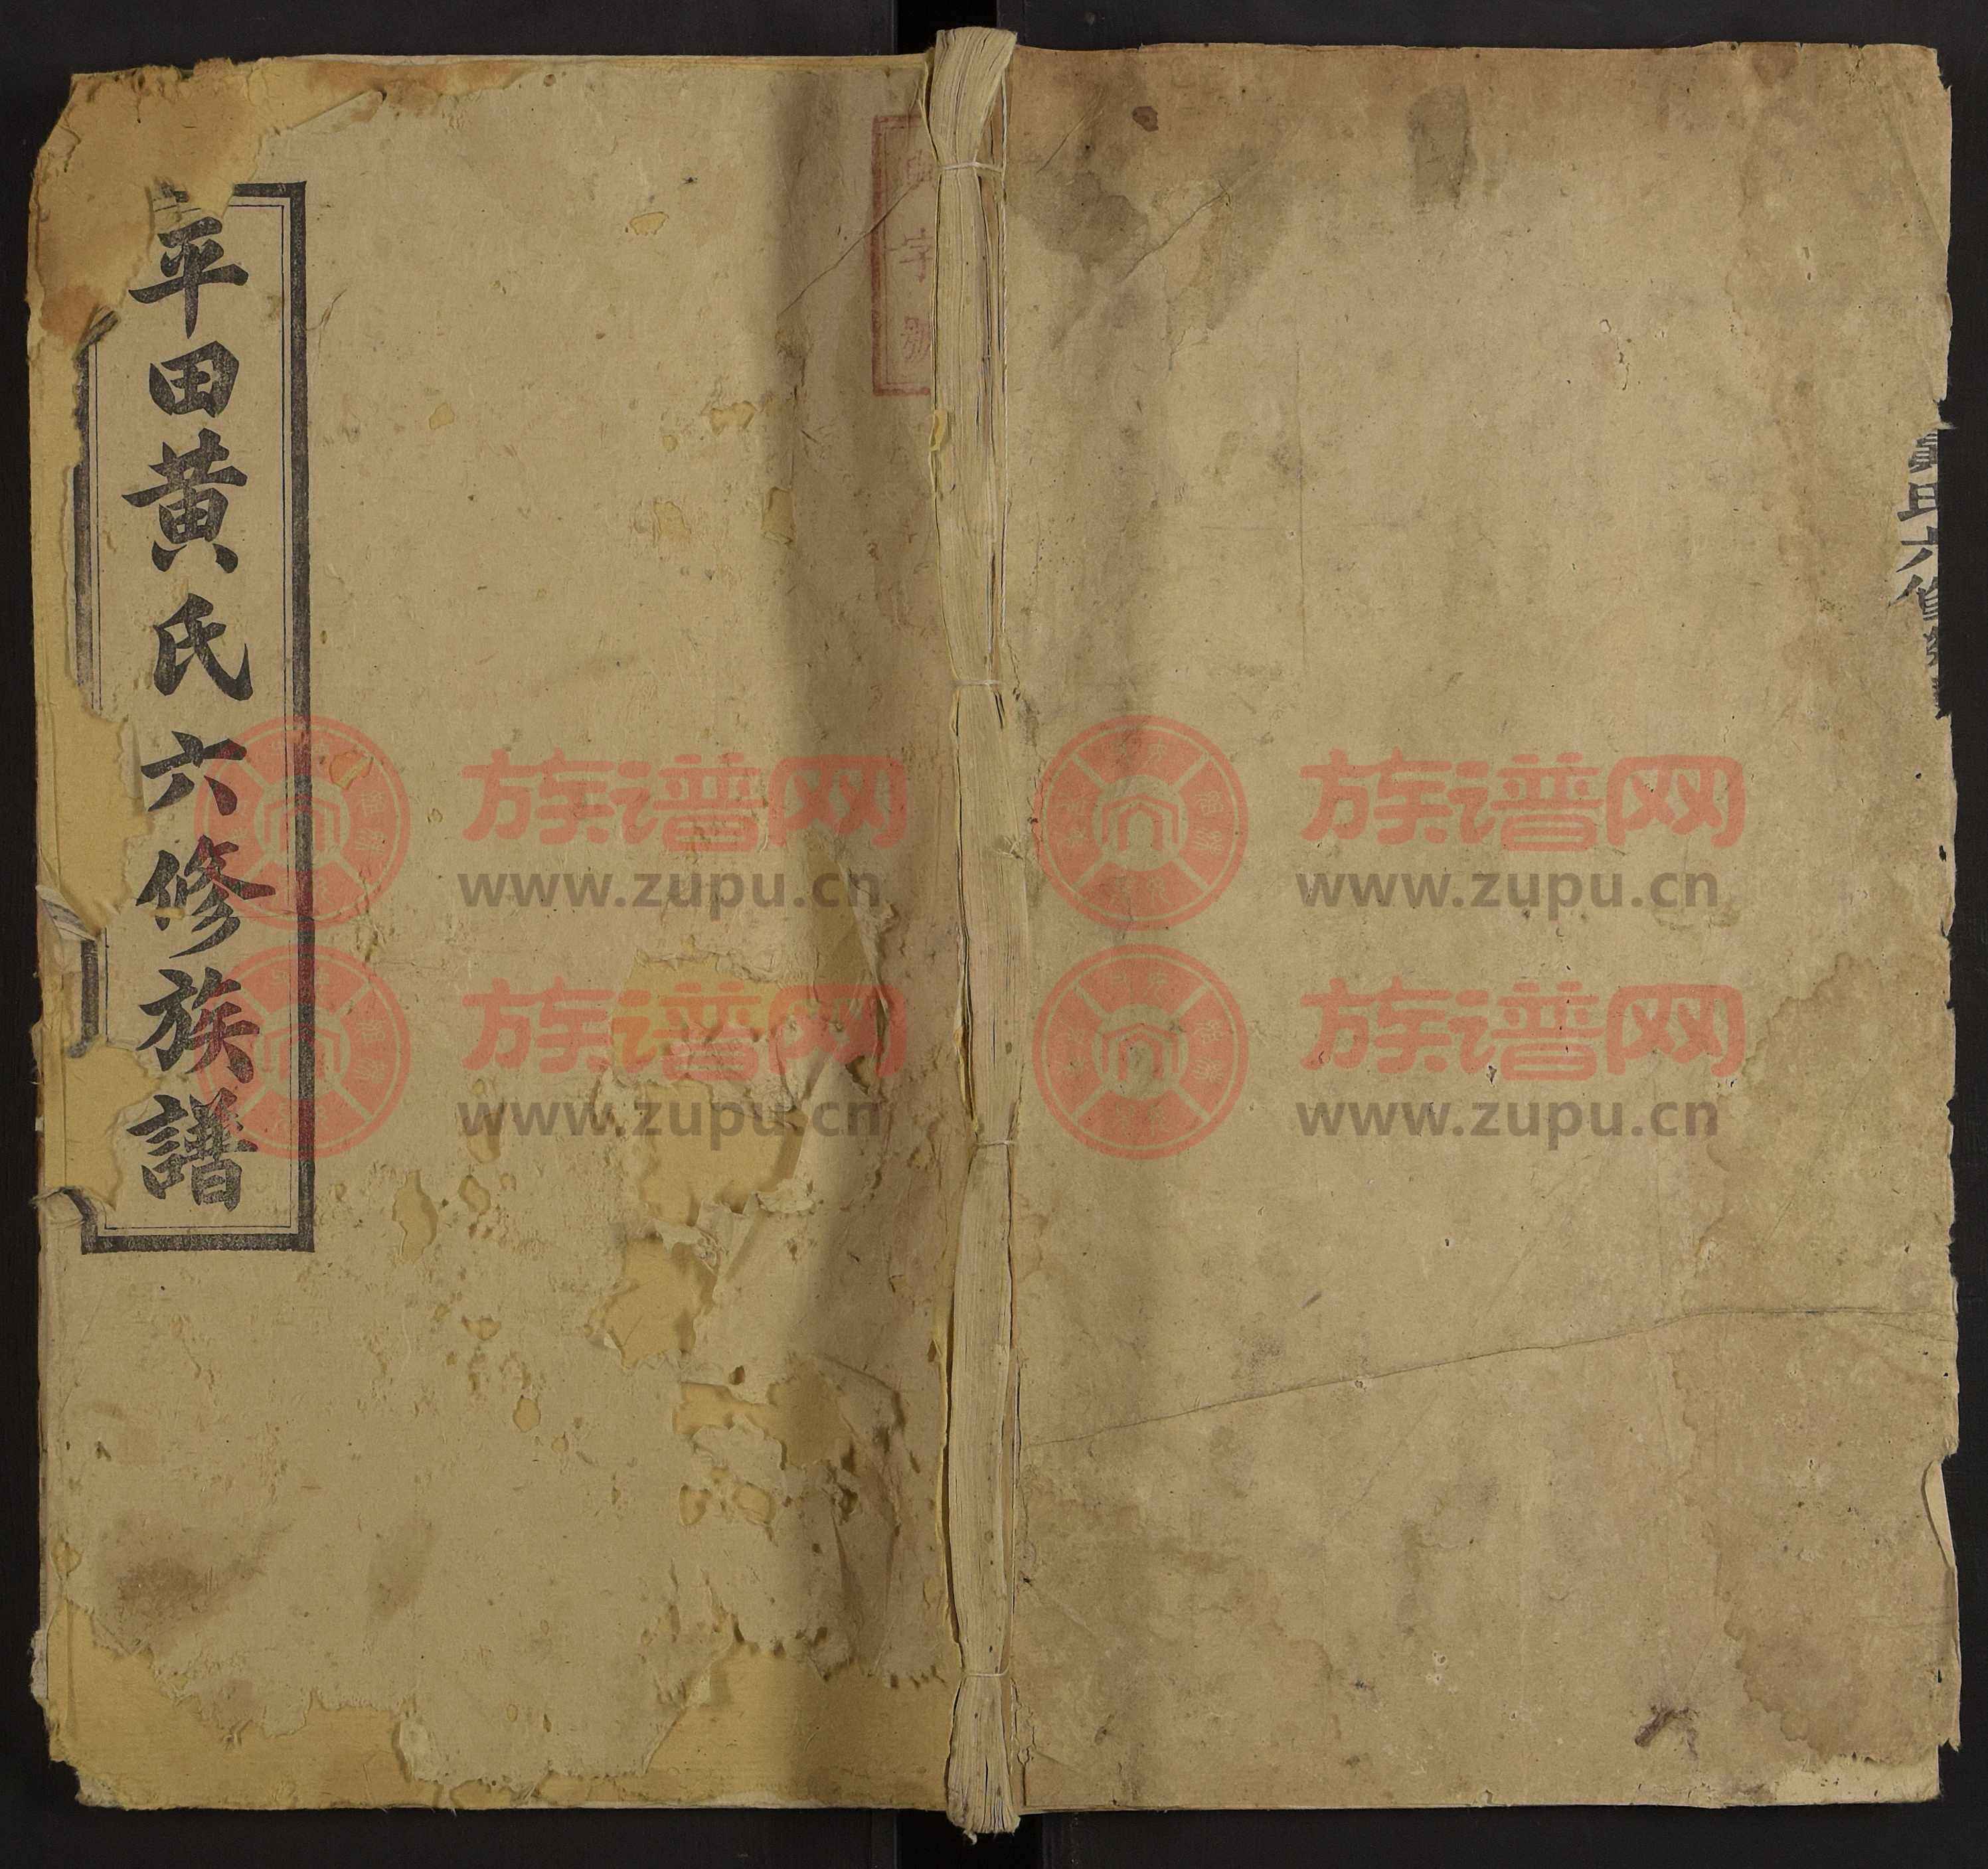 平田黄氏六修族譜
字號
氏六修
族谱网
www.zupu.cn
族谱网
www.zupu.cn
族谱网
www.zupu.cn
族谱网
www.zupu.cn